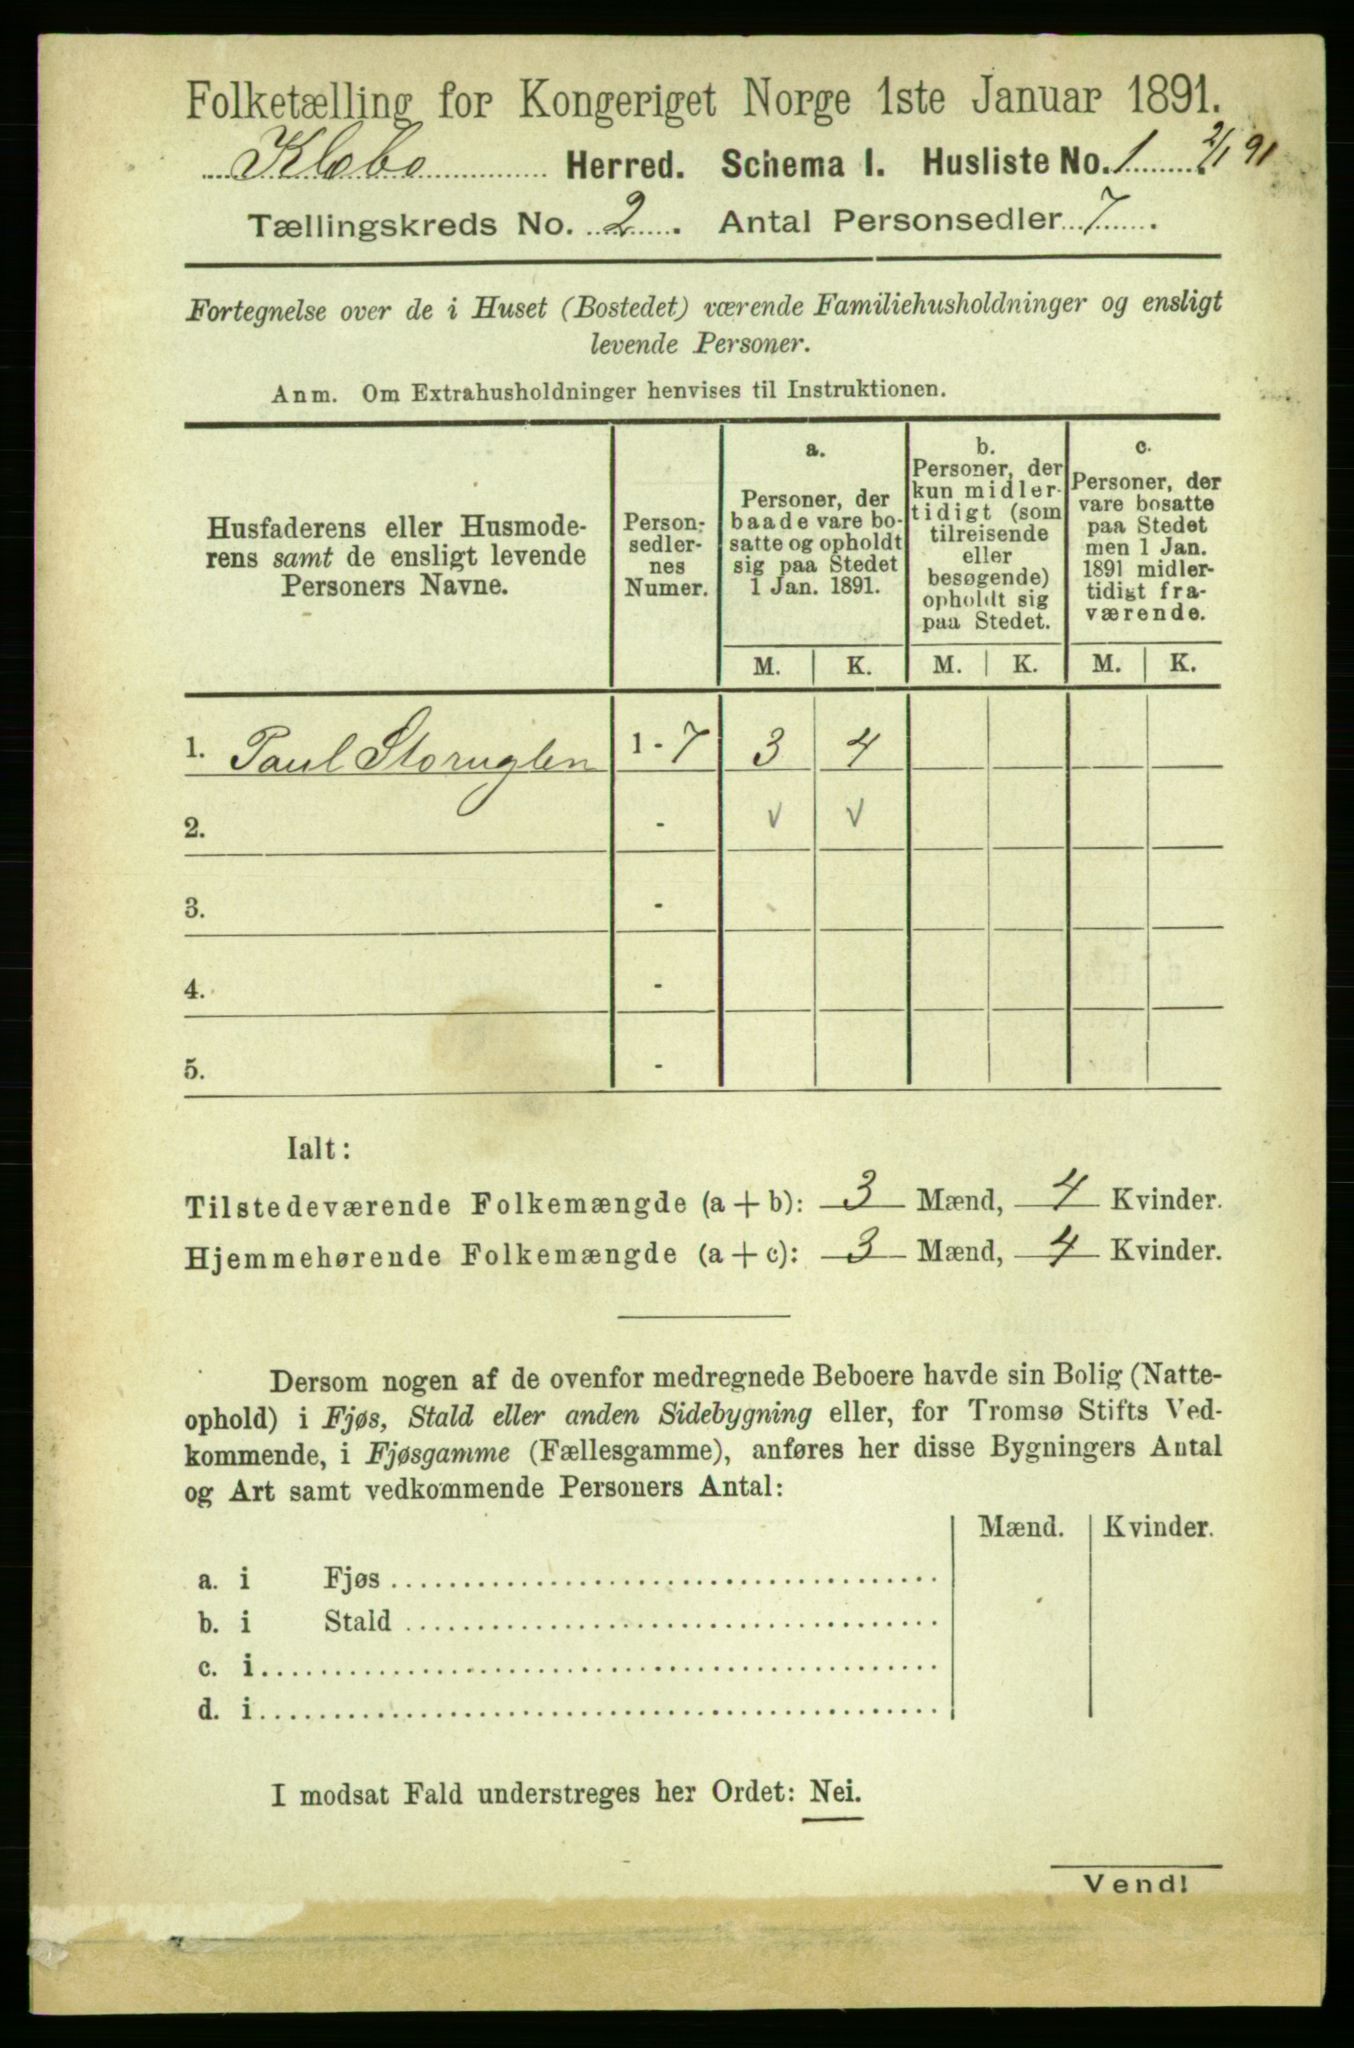 Folketælling for Kongeriget Norge 1ste Januar 1891.
Klæbo Herred. Schema I. Husliste No. 1. 2/1 91
Tællingskreds No. 2. Antal Personsedler 7.
Fortegnelse over de i Huset (Bostedet) værende Familiehusholdninger og ensligt
levende Personer.
Anm. Om Extrahusholdninger henvises til Instruktionen.
Husfaderens eller Husmode-
rens samt de ensligt levende
Personers Navne.
Person-
sedler-
nes
Numer.
a.
Personer, der
baade vare bo-
satte og opholdt
sig paa Stedet
1 Jan. 1891.
b.
Personer, der
kun midler-
tidigt (som
tilreisende
eller
besøgende)
opholdt sig
paa Stedet.
c.
Personer, der
vare bosatte
paa Stedet
men 1 Jan.
1891 midler-
tidigt fra-
værende.
M. K. M. K. M. K.
1. Paul Storuglen 1 - 7 3 4
2. - √ √
3. -
4. -
5. -
Ialt:
Tilstedeværende Folkemængde (a + b): 3 Mænd, 4 Kvinder.
Hjemmehørende Folkemængde (a + c): 3 Mænd, 4 Kvinder.
Dersom nogen af de ovenfor medregnede Beboere havde sin Bolig (Natte-
ophold) i Fjøs, Stald eller anden Sidebygning eller, for Tromsø Stifts Ved-
kommende, i Fjøsgamme (Fællesgamme), anføres her disse Bygningers Antal
og Art samt vedkommende Personers Antal:
Mænd. Kvinder.
a. i Fjøs
b. i Stald
c. i
d. i
I modsat Fald understreges her Ordet: Nei.
Vend!